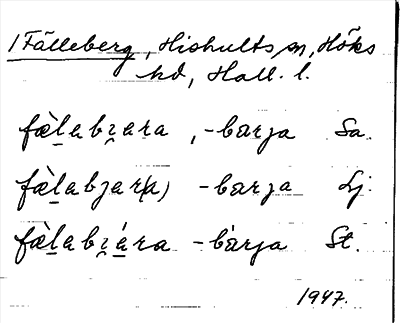 1 Fälleberg, Hishults sn, Höks
hd, Hall. l.
fæ̀l̠abi̯ara, -barja Sa.
fæ̀l̠abjar(a) -barja Lj.
fæ̀l̠abi̯ára -bárja St.
1947.